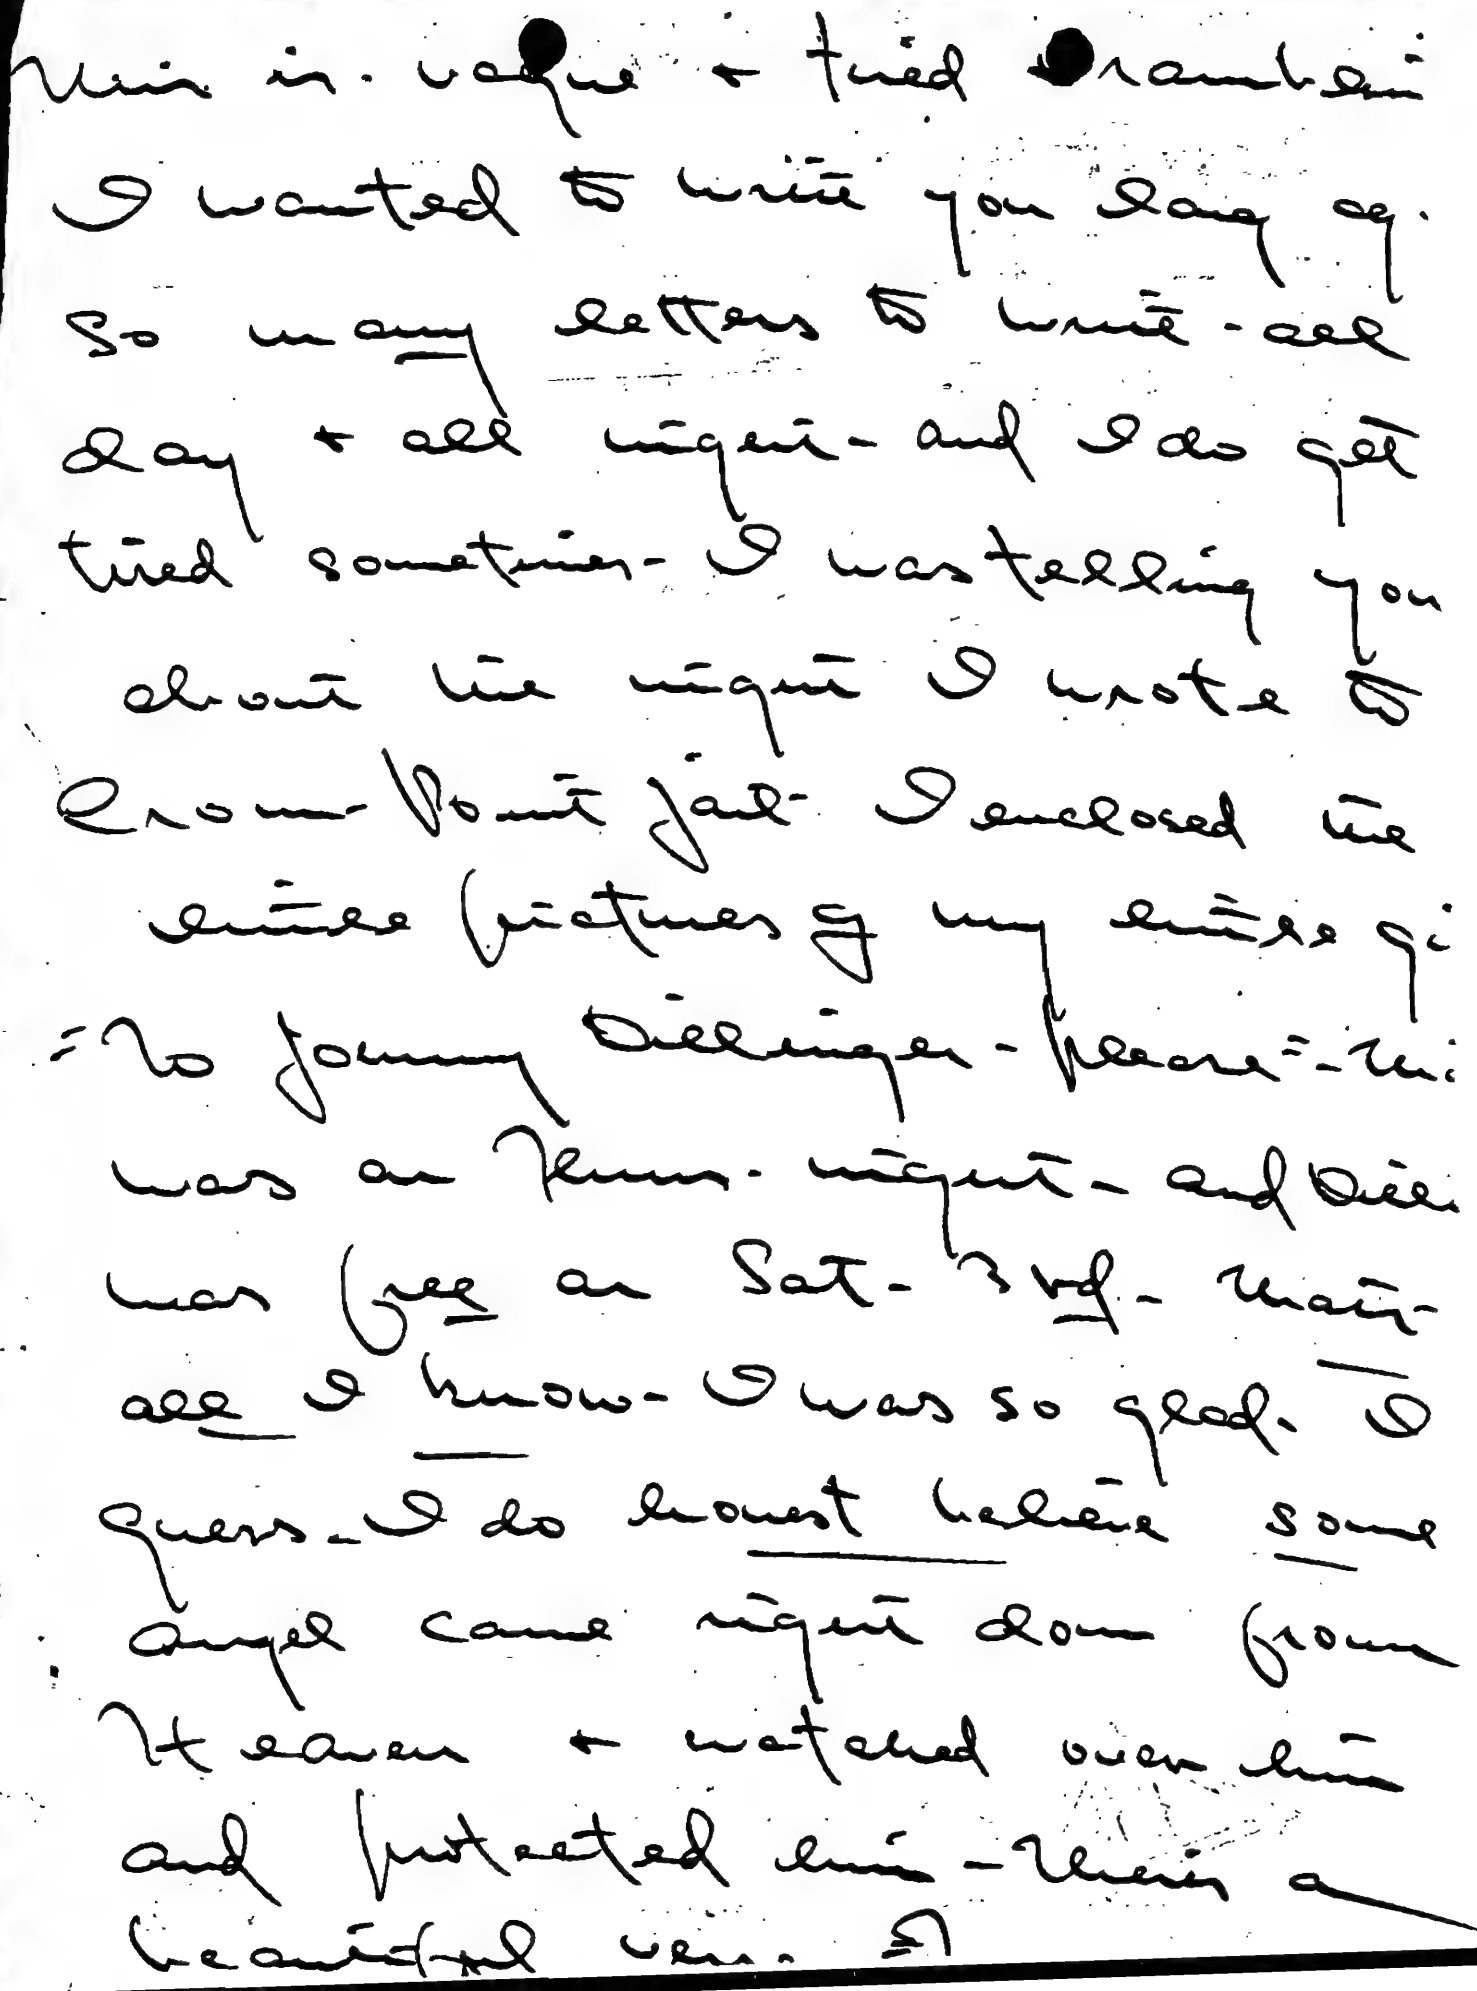 This is. vague + tired
I wanted to write you long ag.
So many letters to write - all
day + all night - and I do get
tired sometimes - I was telling you
about the night I wrote to
Crown Point jail - I enclosed the
little pictures of my little gi
= To Johnny Dillinger - please = - thi
was on Thurs. night - and Dill.
was free on Sat - 3rd - That's
all I know - I was so glad. I
guess - I do honest believe some
angel came right down from
Heaven + watched over him
and protected him - Theres a
beautiful